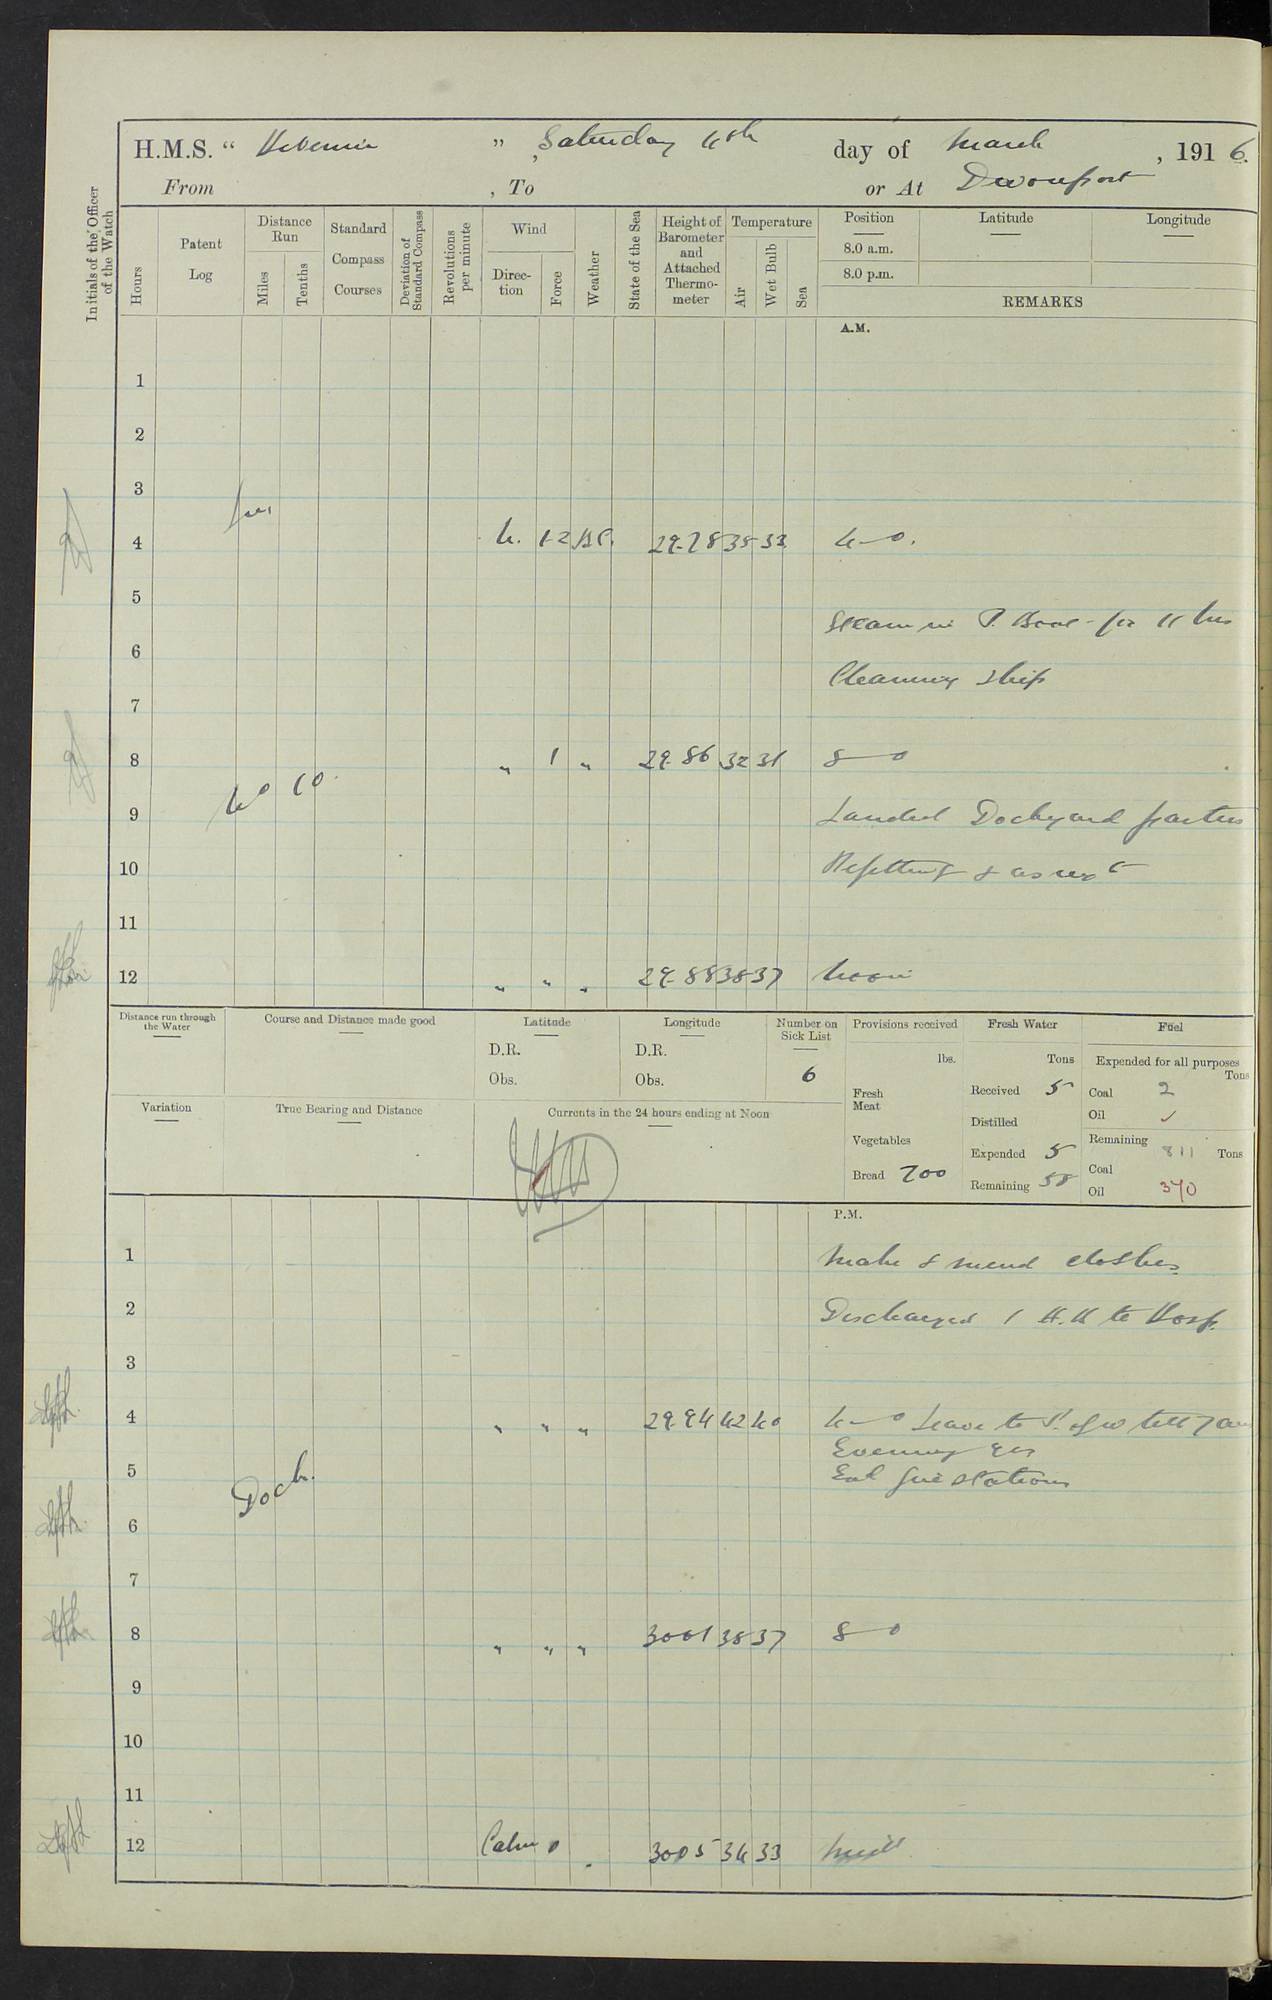 H.M.S. “ Hibernia ” , Saturday 4th day of March , 1916.
From , To or At Devonport
Initials of the Officer of the Watch
Hours
Patent Log
Distance Run
Miles
Tenths
Standard Compass Courses
Deviation of Standard Compass
Revolutions per minute
Wind
Direc-tion
Force
Weather
State of the Sea
Height of Barometer and Attached Thermo-meter
Temperature
Air
Wet Bulb
Sea
Position
Latitude
Longitude
8.0 a.m.
8.0 p.m.
REMARKS
A.M.
1
2
3
4 N. 1-2 B.C. 29.78 35 33 4—0.
5
Steam in P. Boat for 11 hrs
6
Cleaning Ship
7
8 " 1 " 29.86 32 31 8—0
No 10.
9 Landed Dockyard parties
10 Refitting & as req
11
12 " " " 29.88 38 37 Noon
Distance run through the Water
Course and Distance made good
Latitude
D.R.
Obs.
Longitude
D.R.
Obs.
Number on Sick List
6
Provisions received
lbs.
Fresh Meat
Vegetables
Bread 700
Fresh Water
Tons
Received 5
Distilled
Expended 5
Remaining 58
Fuel
Expended for all purposes
Tons
Coal 2
Oil ✓
Remaining 811 Tons
Coal
Oil 370
Variation
True Bearing and Distance
Currents in the 24 hours ending at Noon
P.M.
1 Make & mend clothes
2 Discharged 1 H.R to Hosp.
3
4 " " " 29.94 42 40 4—0 Leave to P. of W till 7 am
Evening Qrs
5 Ext fire stations
Dock.
6
7
8 " " " 3001 38 37 8—0
9
10
11
12 Calm 0 " 3005 34 33 Midt